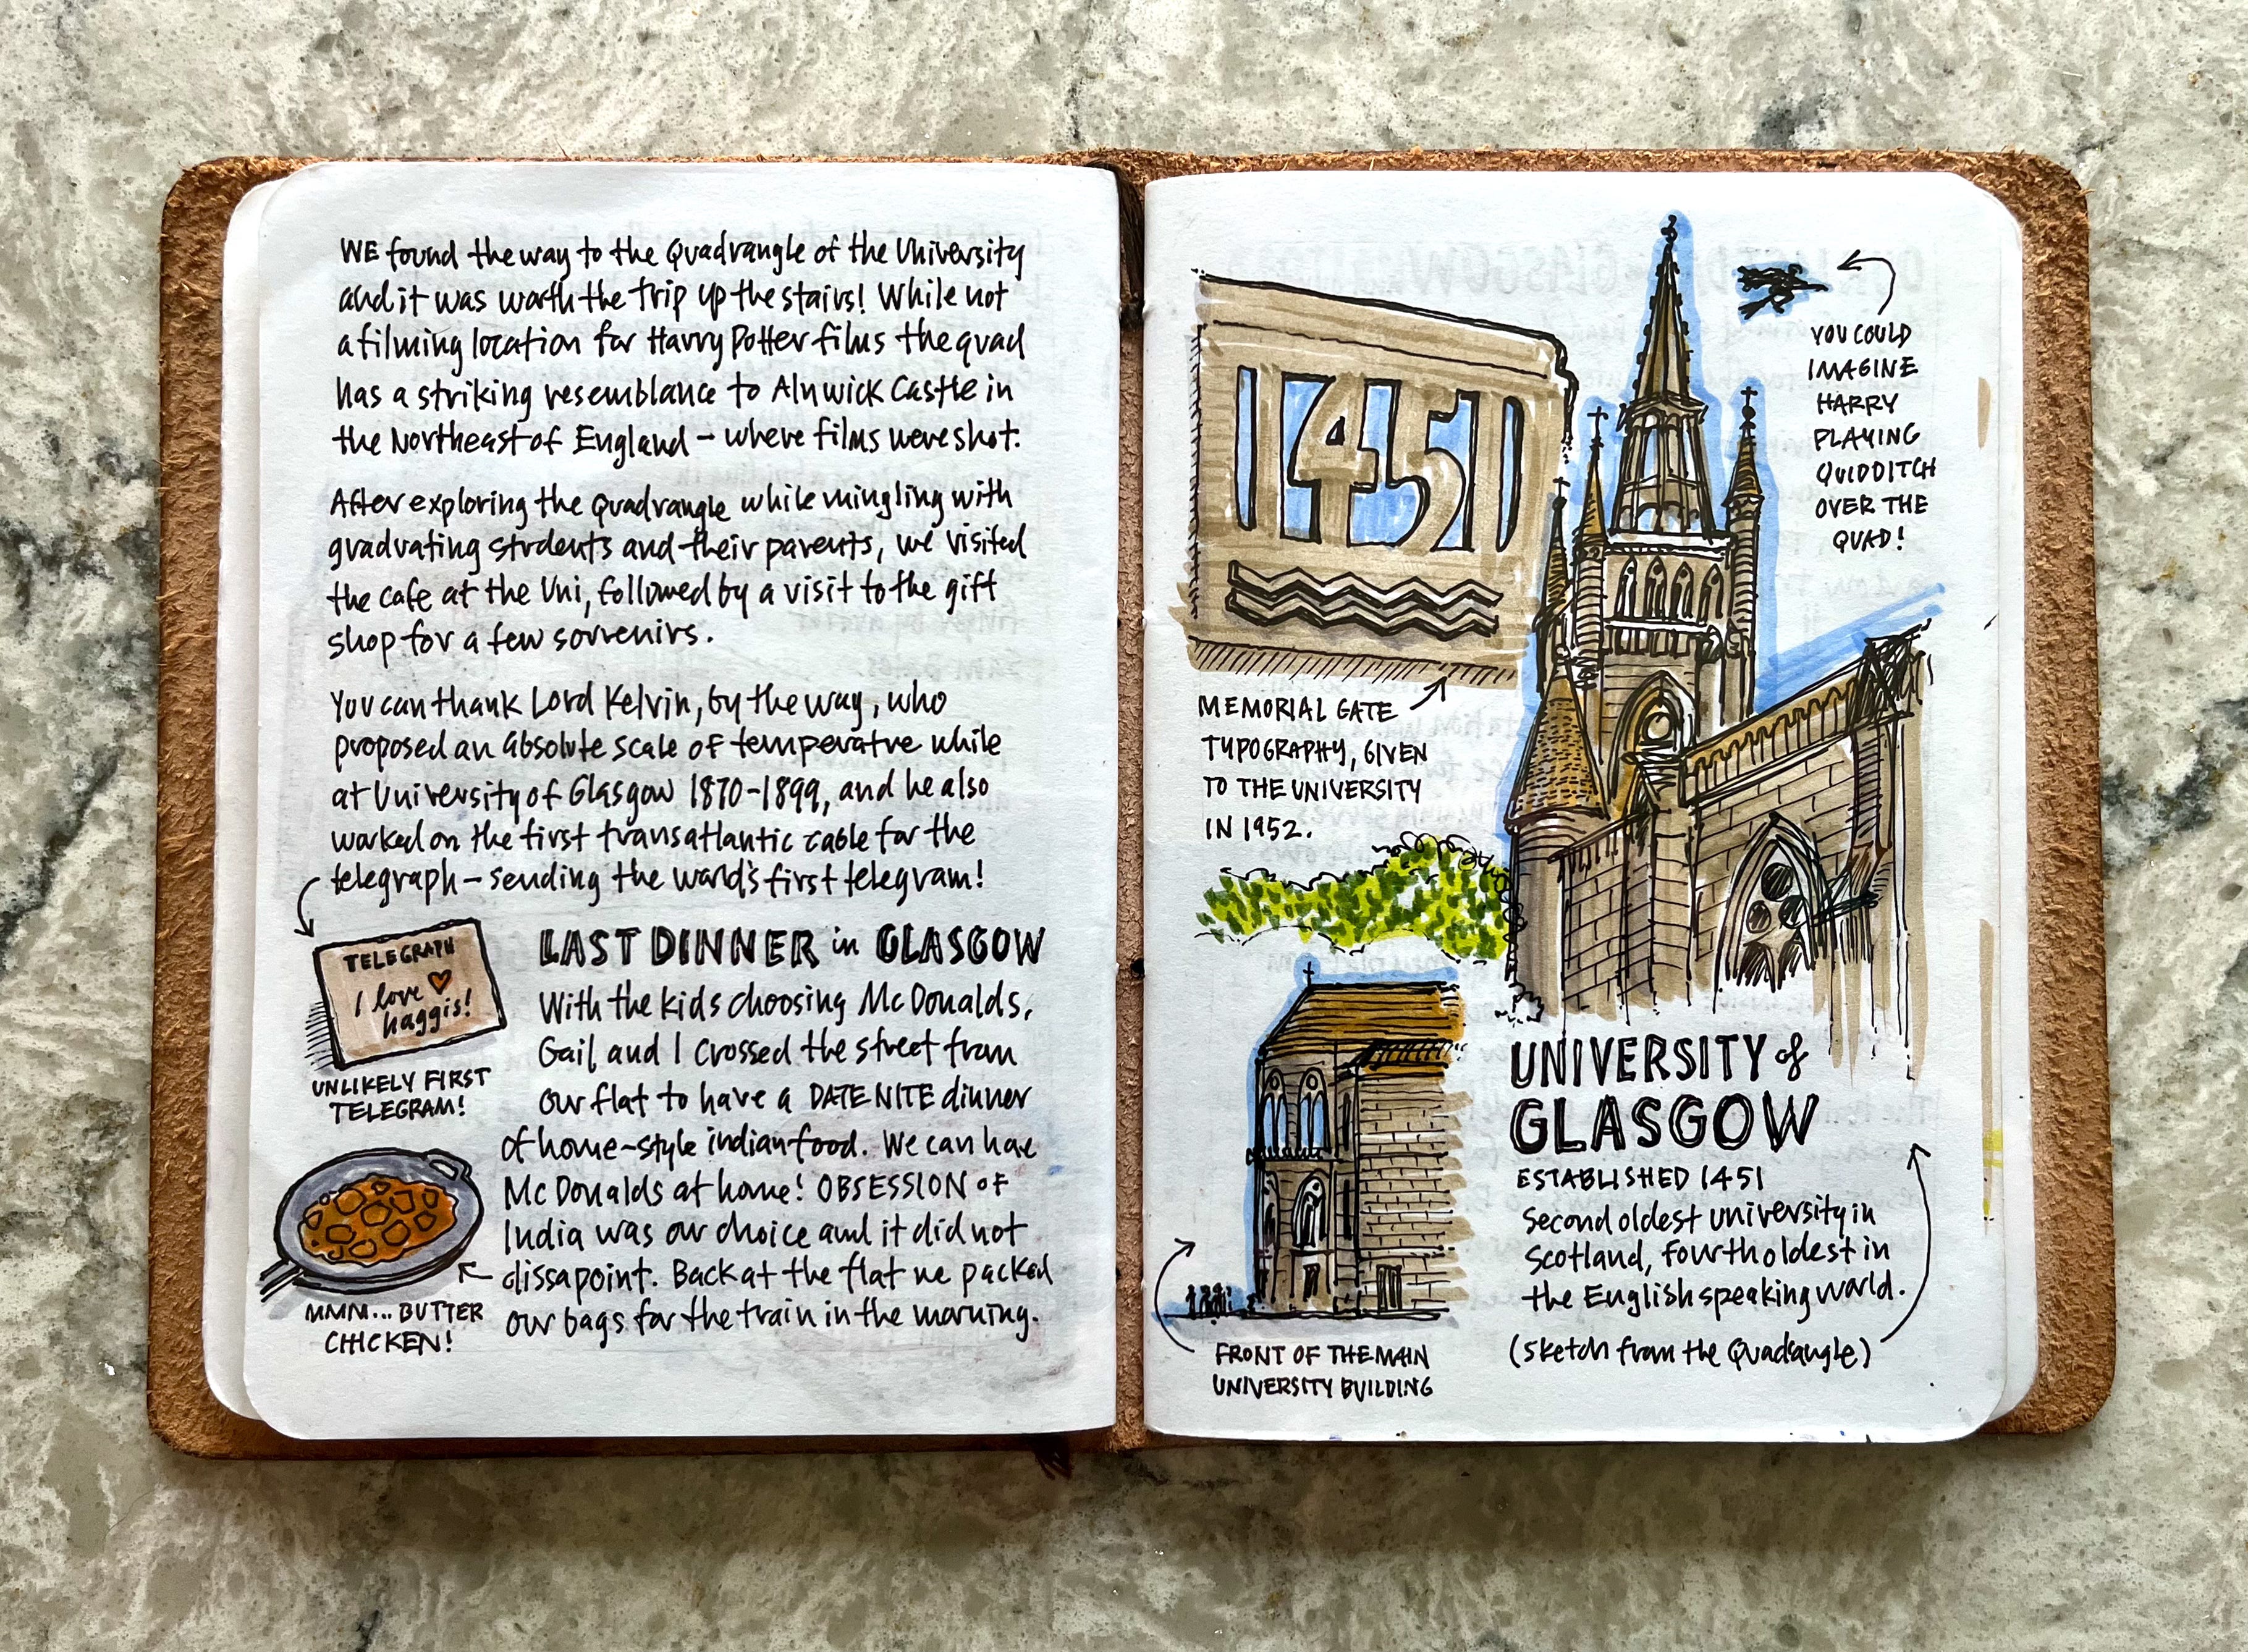 WE found the way to the Quadrangle of the University
and it was worth the trip up the stairs! While not
a filming location for Harry Potter films the quad
has a striking resemblance to Alnwick Castle in
the Northeast of England – where films were shot.
After exploring the Quadrangle while mingling with
graduating students and their parents, we visited
the cafe at the Uni, followed by a visit to the gift
shop for a few souvenirs.
You can thank Lord Kelvin, by the way, who
proposed an absolute scale of temperatre while
at University of Glasgow 1870-1899, and he also
worked on the first transatlantic cable for the
telegraph – sending the world's first telegram!
TELEGRAPH
I love
haggis!
UNLIKELY FIRST
TELEGRAM!
LAST DINNER in GLASGOW
With the kids choosing McDonalds,
Gail and I crossed the street from
our flat to have a DATE NITE dinner
of home-style indian food. We can have
McDonalds at home! OBSESSION OF
India was our choice and it did not
dissapoint. Back at the flat we packed
our bags for the train in the morning.
MMM... BUTTER
CHICKEN!
1451
YOU COULD
IMAGINE
HARRY
PLAYING
QUIDDITCH
OVER THE
QUAD!
MEMORIAL GATE
TYPOGRAPHY, GIVEN
TO THE UNIVERSITY
IN 1952.
UNIVERSITY of
GLASGOW
ESTABLISHED 1451
Second oldest university in
Scotland, fourth oldest in
the English speaking world.
(sketch from the Quadrangle)
FRONT OF THE MAIN
UNIVERSITY BUILDING